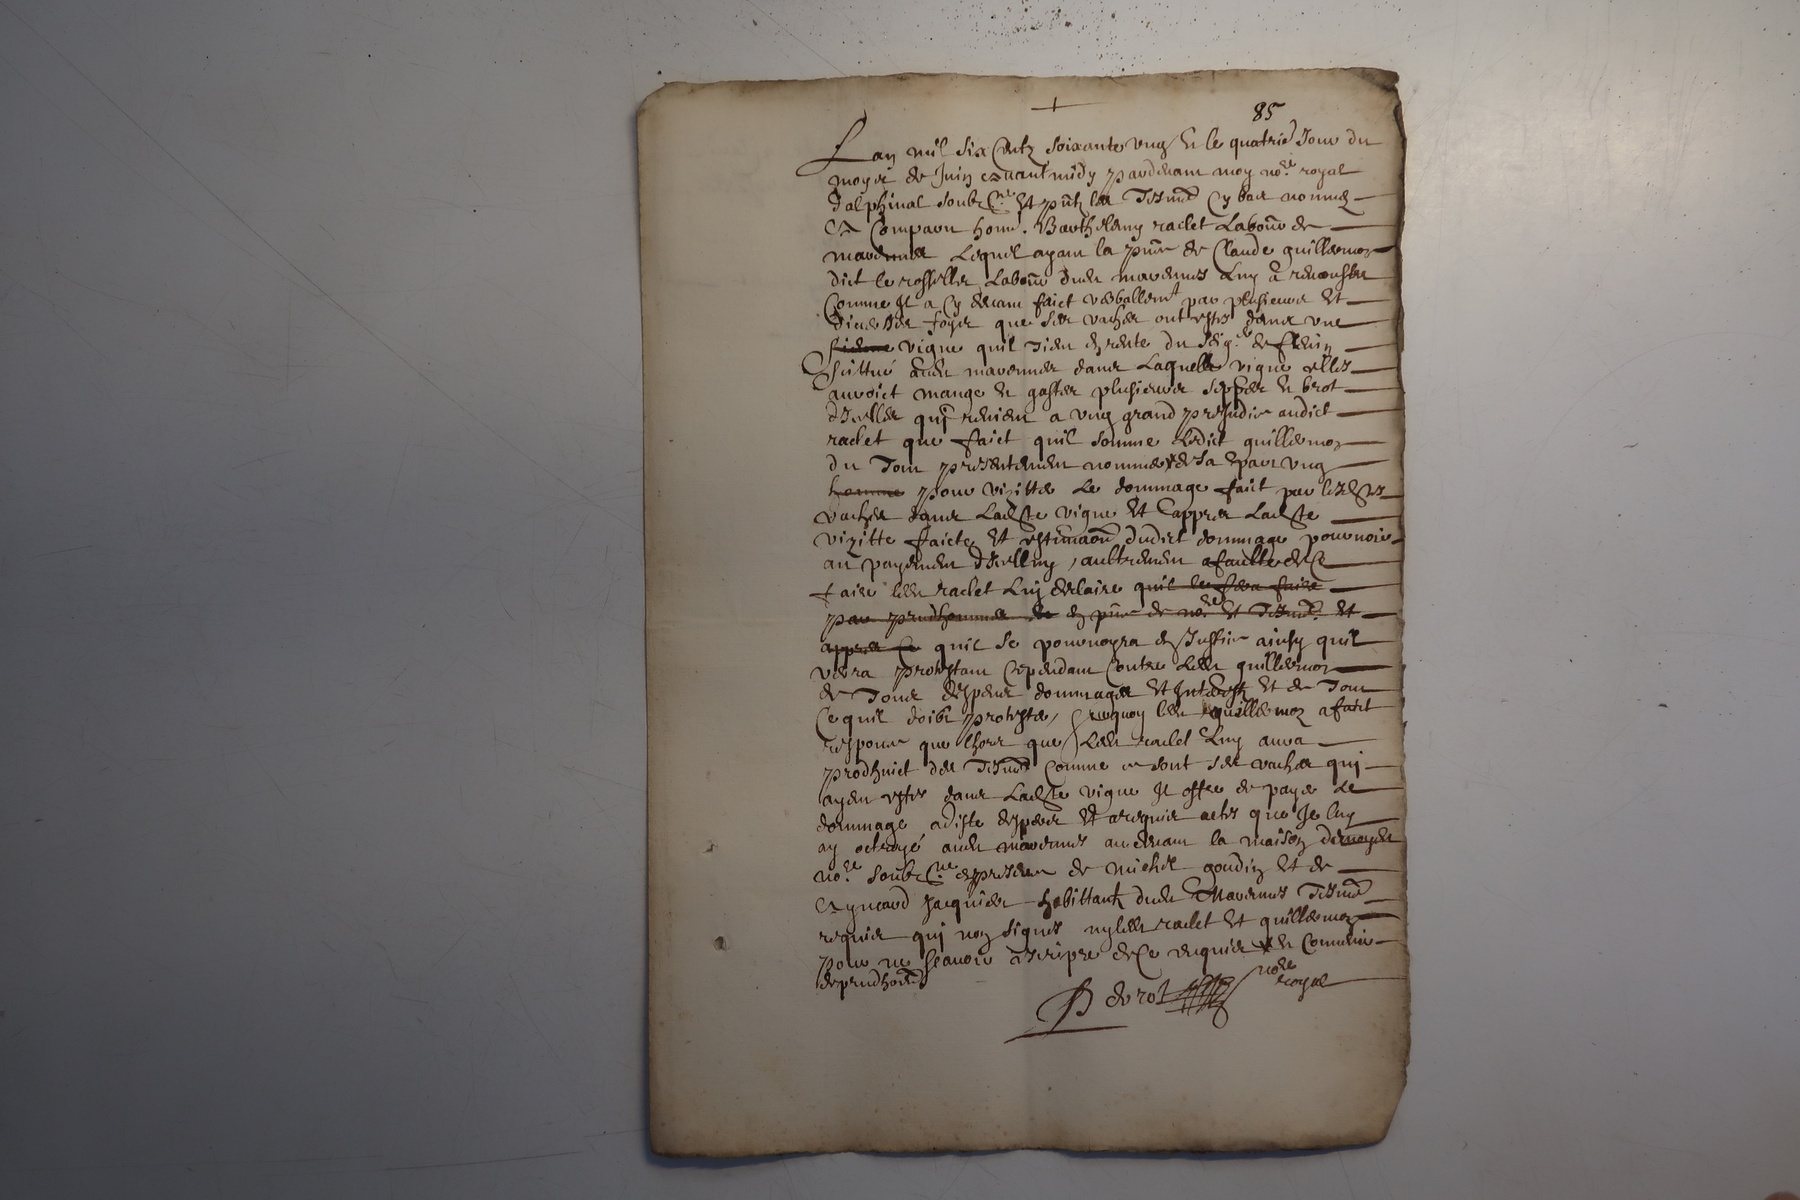 85
Lan mil six Centz soixante ung & le quatrie Jour du
moys de Juin avant midy pardevant moy no.re royal
dalphinal soubz.ne Et pntz les Tesmˢ Cy bas nommez
a Comparu hon. Barthelemy raclet Labour de
mavernes Lequel ayant la pnce de Claude guillermoz
dict le rosselles Labour dudt mavernes Luy a remonstre
Comme Il a Cy devant faict verballemt par plusieurs Et
diverses foys que ses vaches ont estes dans une
vigne quil tient en rente du seigr de
scittue audt mavernes dans Laquelle vigne elles
auroict mange et gaster plusieurs seppes et brot
dicelles qui revient a ung grand preJudice audict
raclet que faict quil somme Ledict guillermoz
du Jour presentement nommer de sa part ung
homme pour vizitter Le dommage faict par lesdites
vaches dans Ladite vigne Et appres Ladite
vizitte faicte Et estimaon dudict dommage pourvoir
au payement dicelluy, aultrement a faulte de Ce
faire ledt raclet Luy desclaire quil le fera faire
par prudhommes en pnce de nore Et Tesmˢ Et
appres Ce quil se pourvoyra en Justice ainsy quil
verra protestant Cependant Contre Ledt guillermoz
de Tous despens dommages Et Interestz Et de Tout
Ce quil doibt protester, sequoy ledt guillermoz a faict
responce que lhors que Ledt raclet Luy aura
prodhuict des Tesmˢ Comme ce sont ses vaches qui
ayent estes dans Ladite vigne Il offre de payer Le
dommage a diste despens Et a requis actes que Je luy
ay octroyé audt mavernes au devant la maison de moydt
no.re soubz.ne en presence de michel goudin Et de
Eynard Jacquier habittantz dudt Mavernes Tesmˢ
requis qui non signes ny ledt raclet Et guillermoz
pour ne scavoir escripre de Ce enquis et Comunie
de prudhoms
derot nore
royal